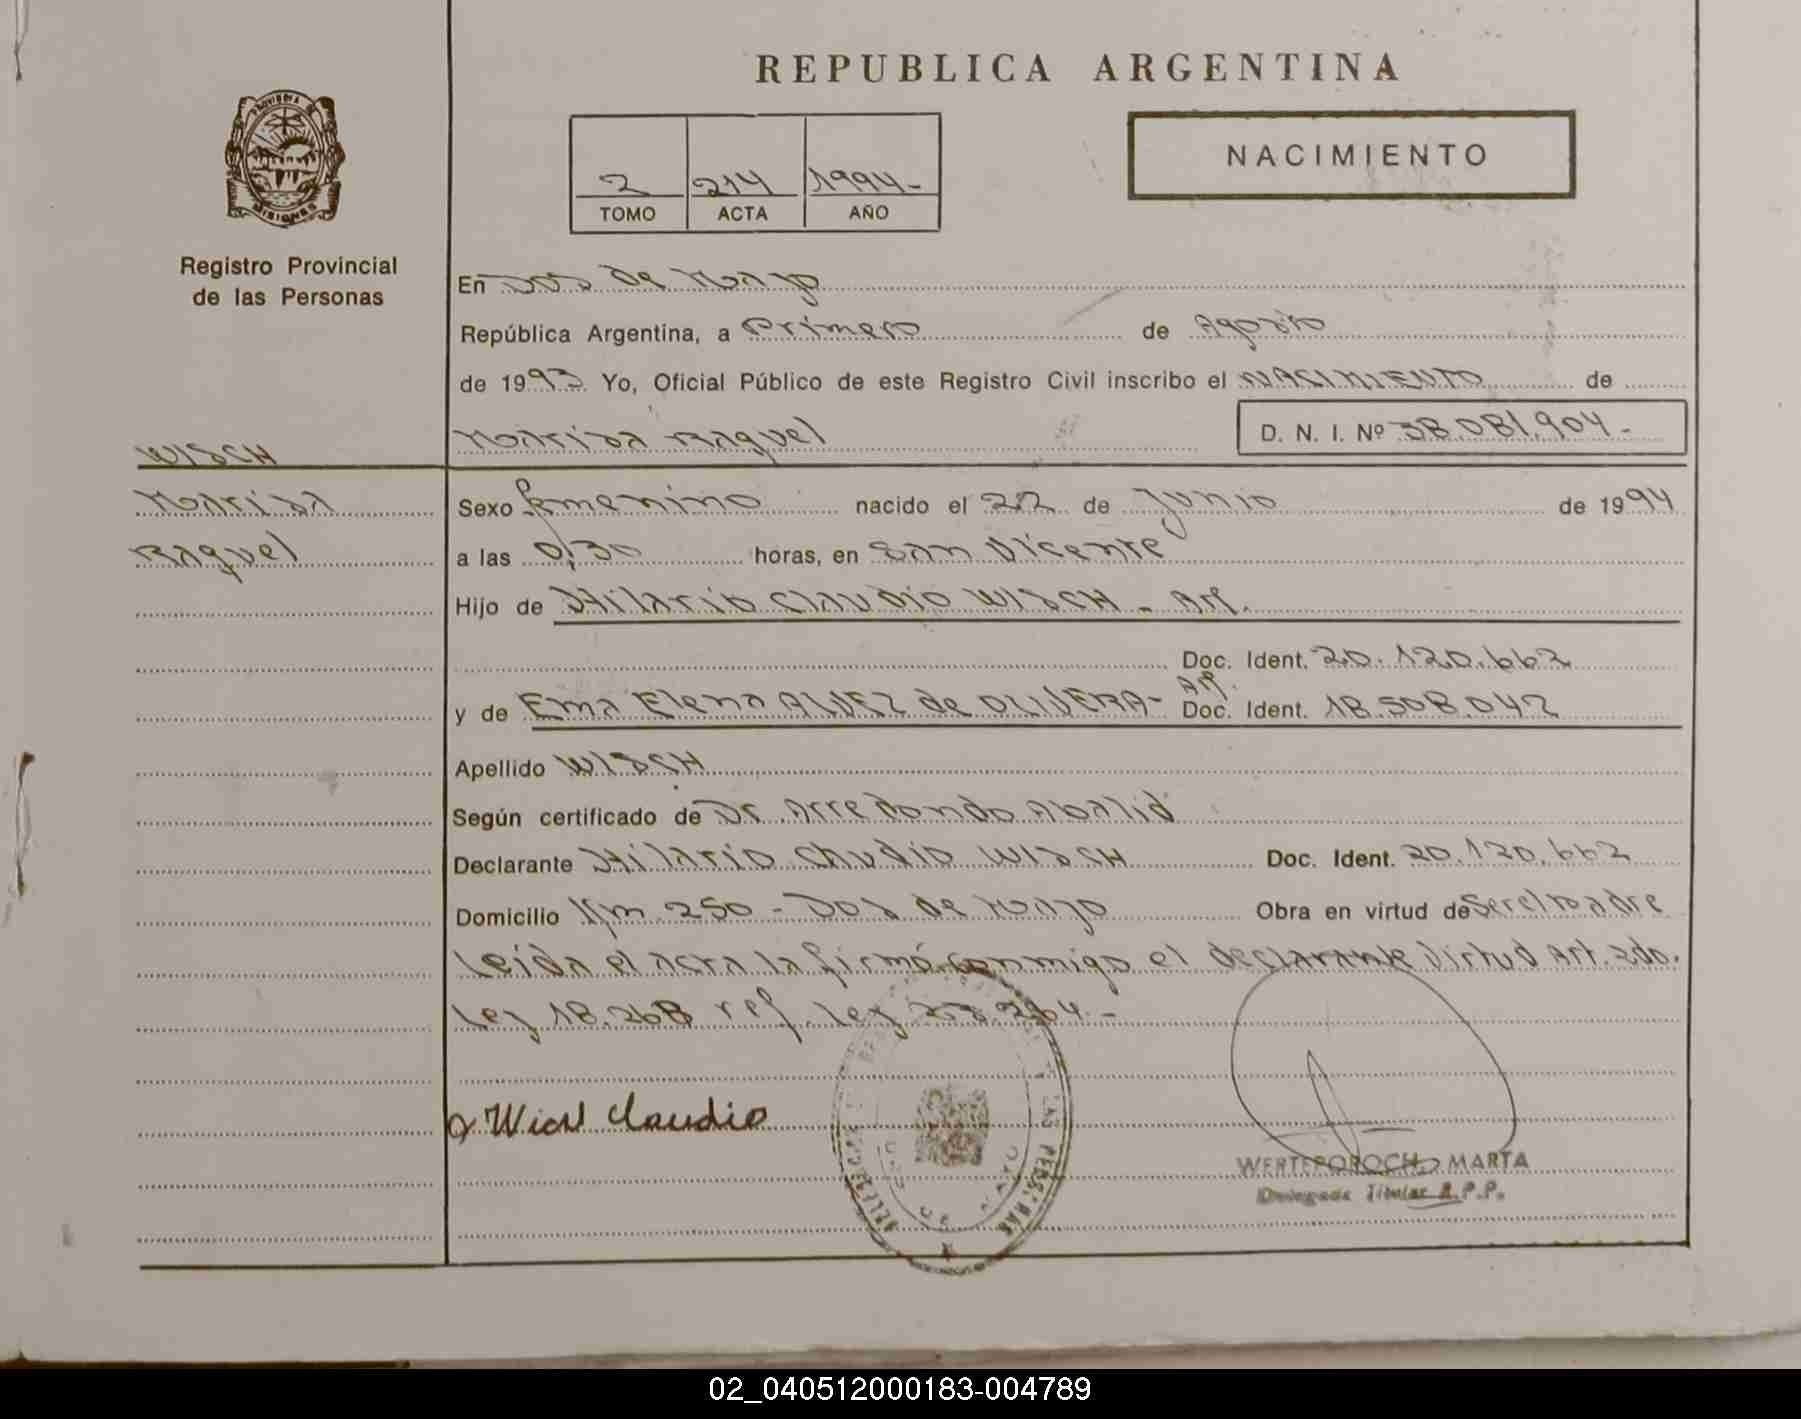 REPUBLICA ARGENTINA
PROVINCIA DE
MISIONES
Registro Provincial
de las Personas
2 214 1994-
TOMO ACTA AÑO
NACIMIENTO
En Dos de Mayo
República Argentina, a Primero de Agosto
de 1993 Yo, Oficial Público de este Registro Civil inscribo el NACIMIENTO de
Marisa Raquel D. N. I. Nº 38.081.904-
WISCH
Marisa
Raquel
Sexo femenino nacido el 22 de Junio de 1994
a las 0,30 horas, en San Vicente
Hijo de Hilario Claudio WISCH - Arg.
Doc. Ident. 20.120.662
y de Ema Elena ALVEZ de OLIVERA- Arg. Doc. Ident. 18.508.042
Apellido WISCH
Según certificado de Dr. Arredondo Abalid
Declarante Hilario Claudio WISCH Doc. Ident. 20.120.662
Domicilio Km 250 - Dos de Mayo Obra en virtud de Ser el Padre
Leida el acta la firmó conmigo el declarante Virtud Art. 2do.
Ley 18.268 ref. Ley 23.264.-
Wich Claudio
WERTEPOROCH, MARTA
Delegada Titular R.P.P.
DE LAS PERSONAS
02_040512000183-004789